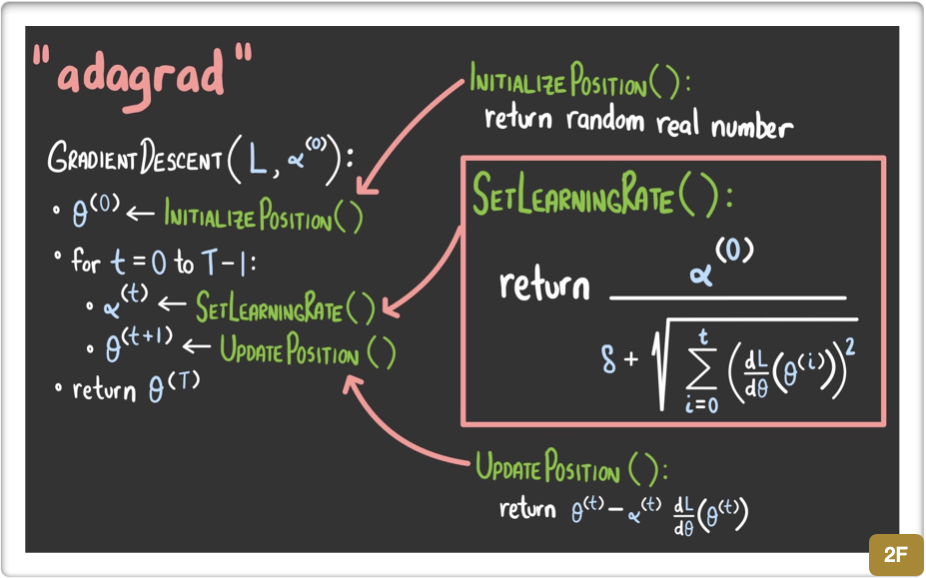 "adagrad"
GRADIENTDESCENT(L, α^(0)):
• θ^(0) ← INITIALIZEPOSITION()
• for t = 0 to T-1:
• α^(t) ← SETLEARNINGRATE()
• θ^(t+1) ← UPDATEPOSITION()
• return θ^(T)
INITIALIZEPOSITION():
return random real number
SETLEARNINGRATE():
return α^(0) / (δ + √(∑_{i=0}^{t} (dL/dθ (θ^(i)))^2))
UPDATEPOSITION():
return θ^(t) - α^(t) dL/dθ (θ^(t))
2F